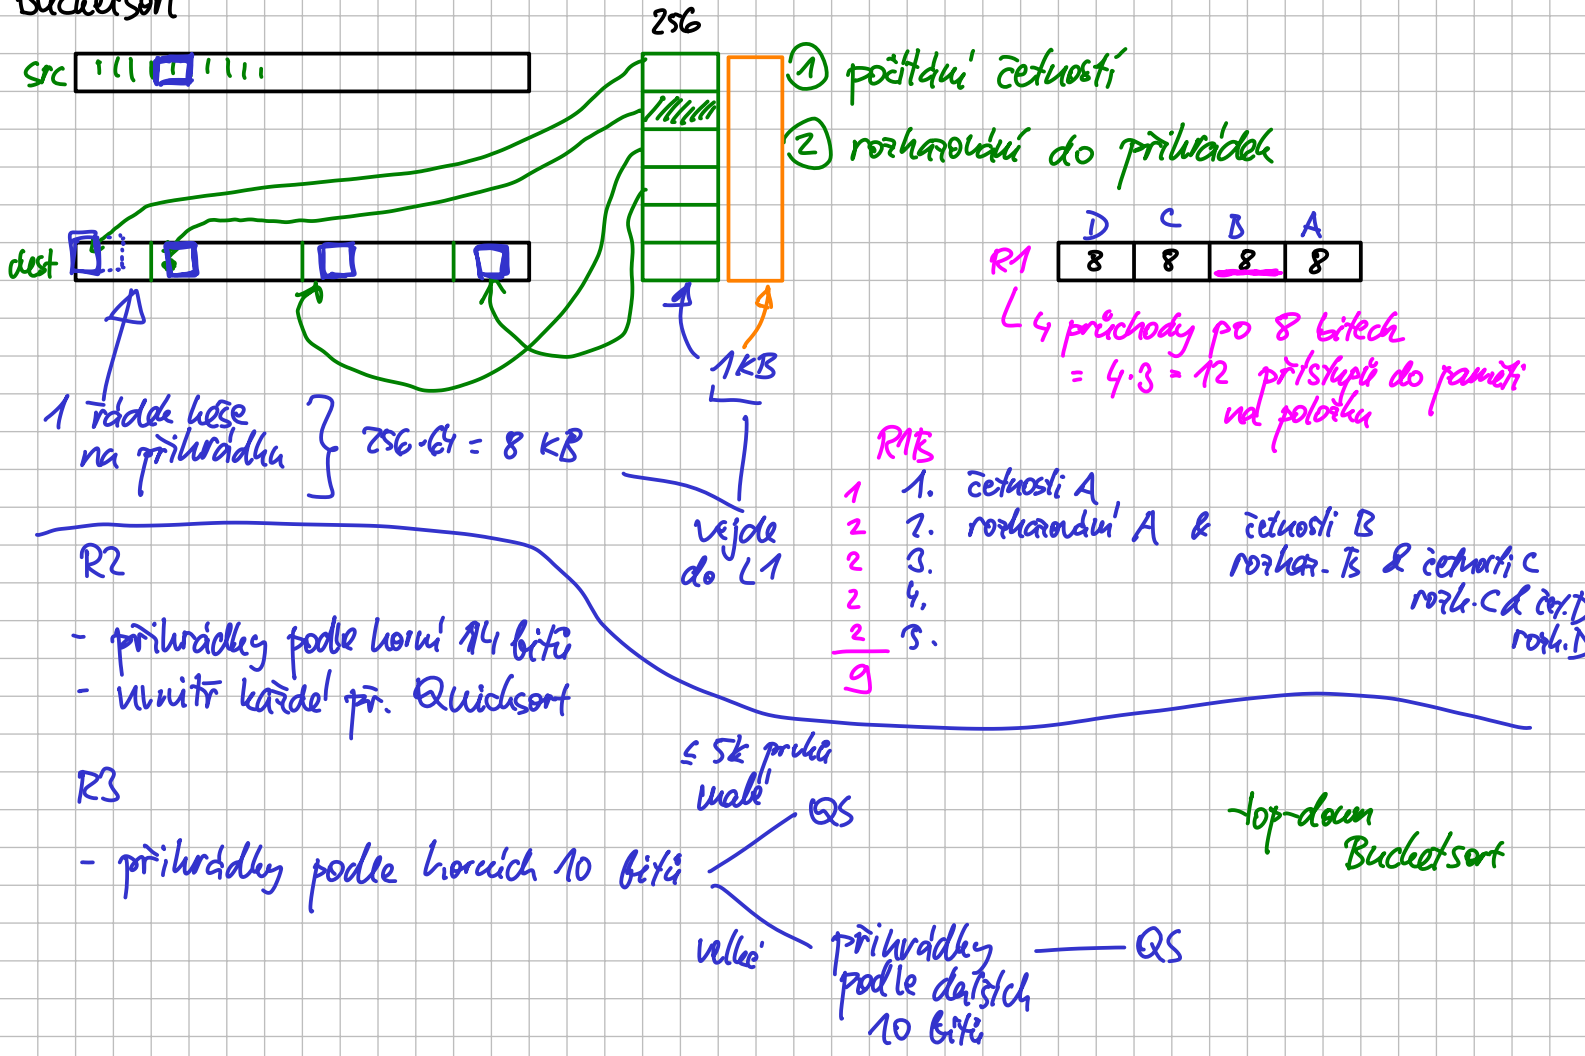 Bucketsort
256
src
① počítání četností
② rozhazování do přihrádek
dest
D C B A
R1 8 8 8 8
4 průchody po 8 bitech
= 4·3 = 12 přístupů do paměti
na položku
1KB
1 řádek keše
na přihrádku
256·64 = 8 KB
vejde
do L1
R1B
1 1. četnosti A
2 2. rozhazování A & četnosti B
2 3. rozhaz. B & četnosti C
2 4. rozh. C & čet. D
2 5. rozh. D
9
R2
- přihrádky podle horní 14 bitů
- uvnitř každé př. Quicksort
R3
- přihrádky podle horních 10 bitů
≤ 5k prvků
malé
QS
velké
přihrádky
podle dalších
10 bitů
QS
top-down
Bucketsort